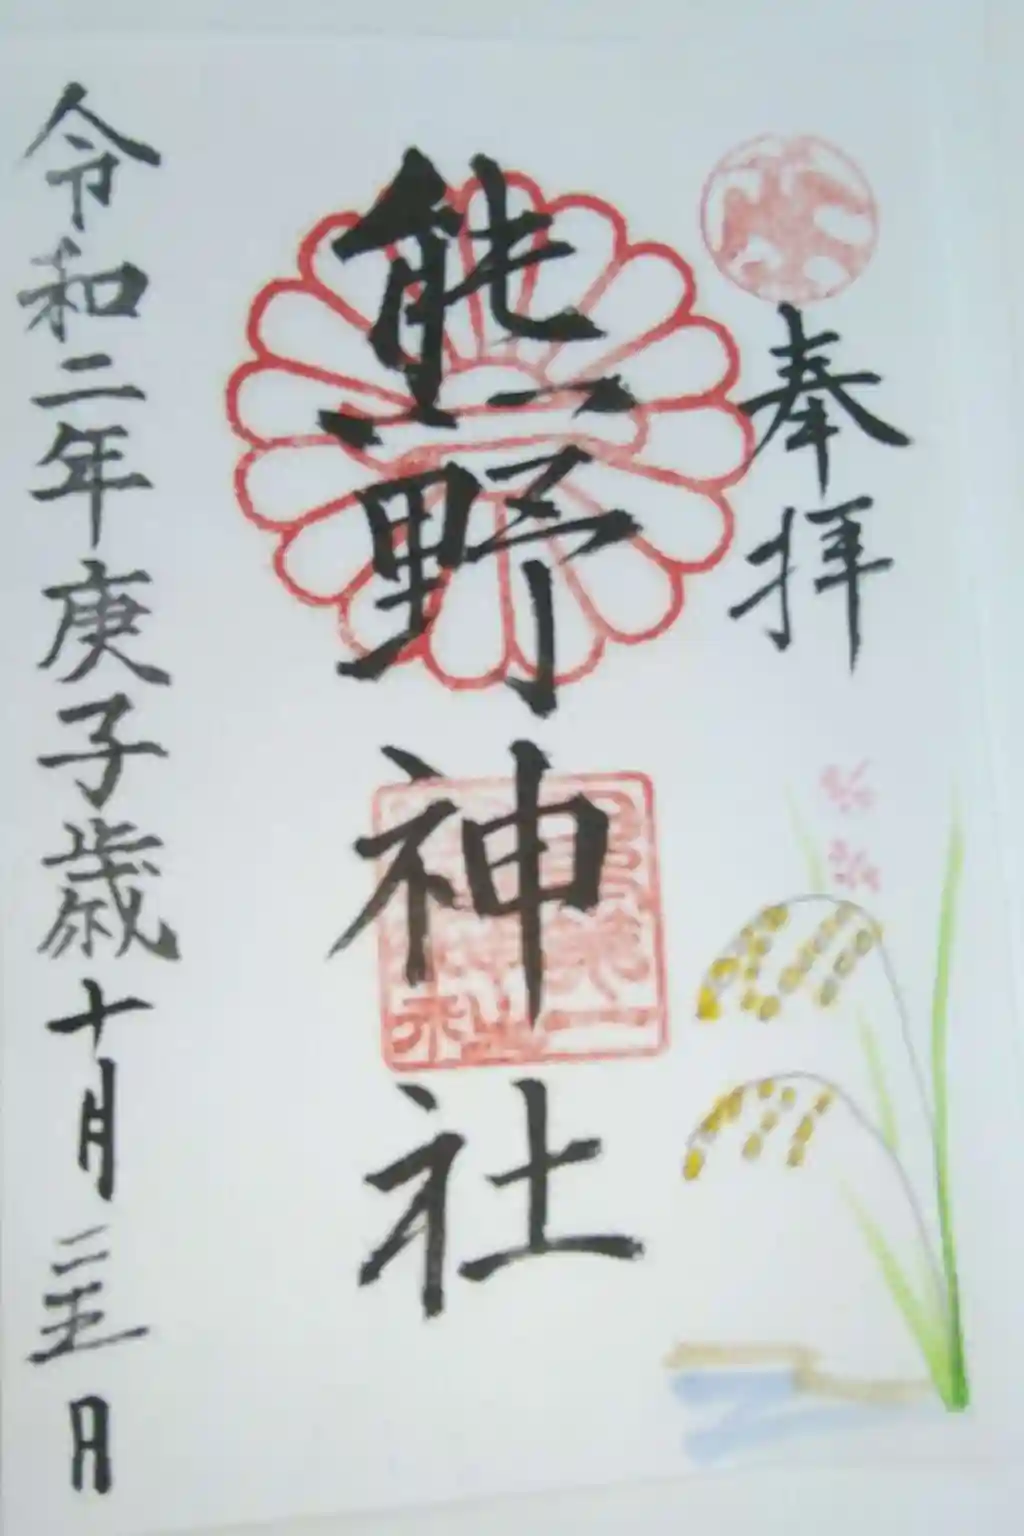 奉拝
熊野神社
令和二年庚子歳十月二十五日